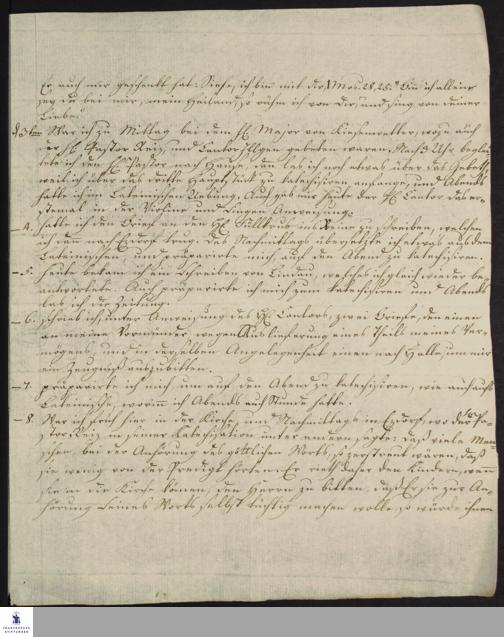 Er auch mir geschenkt hat: Siehe, ich bin mit dir, 1 Mos. 28, 15. Bin ich allein
sey du bei mir, mein Heiland, so rühm ich von dir, und sing von deiner
Liebe.
d 3ten War ich zu Mittag bei dem H. Major von Kiesenwetter, wozu auch
der H. Pastor Reiz, und Cantor Illgen gebeten waren. Nach 3 Uhr beglei-
tete ich den H. Pastor nach Hause, dan las ich noch etwas über das Gebeth
weil ich über das dritte Hauptstück zu catechisiren anfange, und Abends
hatte ich im Lateinischen Uebung. Auch gab mir heute der H. Cantor das er-
stemal in der Violine und Singen Anweisung.
— 4. hatte ich den Brief an den H. ins Reine zu schreiben, welchen
ich dan nach trug. Des Nachmittags übersetzte ich etwas aus dem
Lateinischen, und präparirte mich auf den Abend zu catechisiren.
— 5. Heute bekam ich ein Schreiben von Linden, welches ich gleich wieder be-
antwortete. Auch präparirte ich mich zum catechisiren und Abends
las ich die Zeitung.
— 6. schrieb ich, unter Anweisung des H. Cantors, zwei Briefe, den einen
an meine Vormünder, wegen Auslieferung eines Theils meines Ver-
mögens, und in derselben Angelegenheit einen nach Halle, um mir
ein Zeugniß auszubitten.
— 7. präparirte ich mich, um auf den Abend zu catechisiren, wie auch aufs
Lateinische, worin ich Abends auch Stunde hatte.
— 8. War ich früh hier in der Kirche, und Nachmittags in , wo der H. Pa-
stor Reiz, in seiner Katechisation unter andern sagte: daß viele Men-
schen, bei der Anhörung des göttlichen Worts, so zerstreut wären, daß
sie wenig von der Predigt hörten. Er rieth daher den Kindern, wen
sie in die Kirche kämen, den Herrn zu bitten, daß Er sie zur An-
hörung Seines Worts, selbst tüchtig machen wolle, so würde ihnen
FRANCKESCHE
STIFTUNGEN